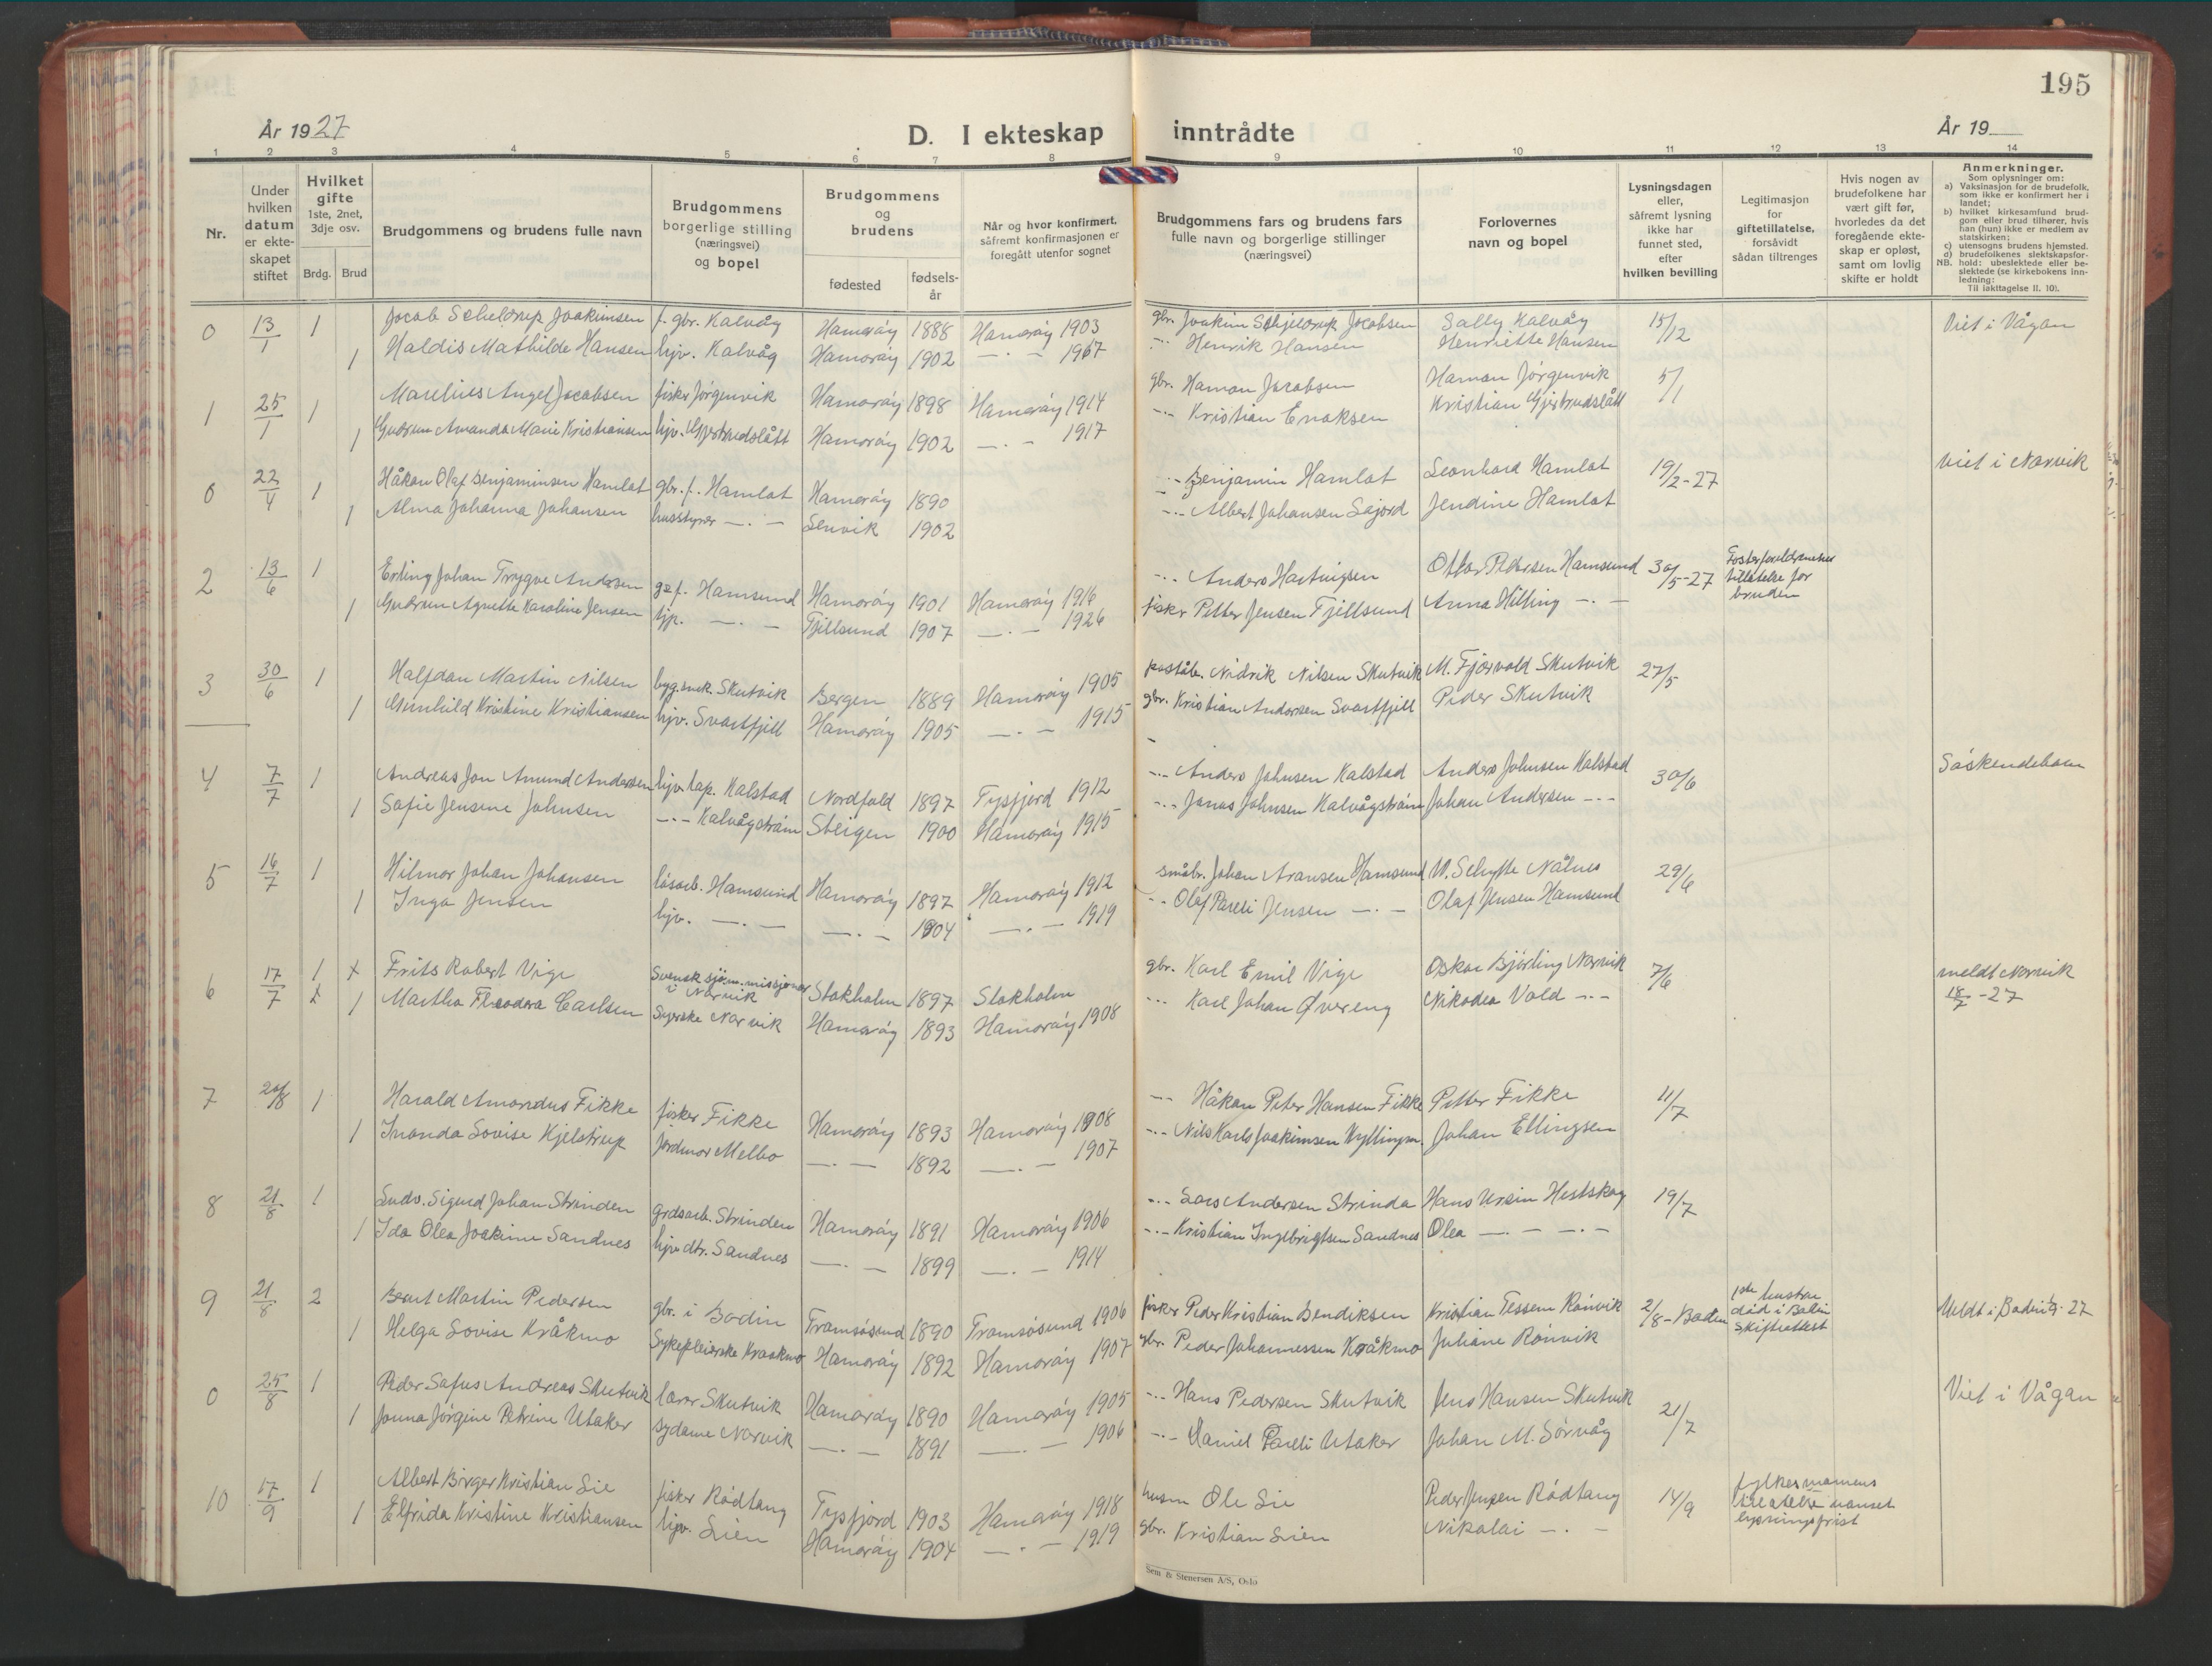 195
År 1927
D. I ekteskap inntrådte
År 19
1 2 3 4 5 6 7 8 9 10 11 12 13 14
Nr.
Under hvilken datum er ekteskapet stiftet
Hvilket gifte 1ste, 2net, 3dje osv.
Brdg. Brud
Brudgommens og brudens fulle navn
Brudgommens borgerlige stilling (næringsvei) og bopel
Brudgommens og brudens
fødested
fødselsår
Når og hvor konfirmert, såfremt konfirmasjonen er foregått utenfor sognet
Brudgommens fars og brudens fars fulle navn og borgerlige stillinger (næringsvei)
Forlovernes navn og bopel
Lysningsdagen eller, såfremt lysning ikke har funnet sted, efter hvilken bevilling
Legitimasjon for giftetillatelse, forsåvidt sådan tiltrenges
Hvis nogen av brudefolkene har vært gift før, hvorledes da det foregående ekteskap er opløst, samt om lovlig skifte er holdt
Anmerkninger.
Som oplysninger om:
a) Vaksinasjon for de brudefolk, som ikke er konfirmert her i landet;
b) hvilket kirkesamfund brudgom eller brud tilhører, hvis han (hun) ikke er medlem av statskirken;
c) utensogns brudens hjemsted.
d) brudefolkenes slektskapsforhold: ubeslektede eller beslektede (se kirkebokens innledning:
NB.
Til iakttagelse II. 10).
0 13/1 1 Jocob Scheldrup Joakimsen f. gbr. Kalvåg Hamarøy 1888 Hamarøy 1903 gbr. Joakim Schjeldrup Jacobsen Sally Kalvåg 15/12 Viet i Vågan
1 Haldis Mathilde Hansen hjv. Kalvåg Hamarøy 1902 —.— 1917 -.- Henrik Hansen Henriette Hansen
1 25/1 1 Marelius Angel Jacobsen fisker Jørgenvik Hamarøy 1898 Hamarøy 1914 gbr. Haman Jacobsen Haman Jørgenvik 5/1
1 Gudrun Amanda Marie Kristiansen hjv. Gjertrudslått Hamarøy 1902 —.— 1917 -.- Kristian Enoksen Kristian Gjertrudslått
0 22/4 1 Håkon Olaf Benjaminsen Hamlot gbr. f. Hamlot Hamarøy 1890 -.- Benjamin Hamlot Leonhard Hamlot 19/2-27 viet i Narvik
1 Alma Johanna Johansen husstyrer —.— Lenvik 1902 -.- Albert Johansen Sajord Jendine Hamlot
2 13/6 1 Erling Johan Trygve Andersen gsf. Hamsund Hamarøy 1901 Hamarøy 1916 -.- Anders Hartvigsen Ottar Pedersen Hamsund 30/5-27 Fosterforeldrenes tillatelse for bruden
1 Gudrun Agnette Karoline Jensen hjv. —.— Tjellsund 1907 —.— 1926 fisker Petter Jensen Tjellsund Anna Hilling —.—
3 30/6 1 Halfdan Martin Nilsen byg.snek. Skutvik Bergen 1889 Hamarøy 1905 poståb. Nidrik Nilsen Skutvik M. Fjærvold Skutvik 27/5
1 Gunhild Kristine Kristiansen hjv. Svartfjell Hamarøy 1905 —.— 1915 gbr. Kristian Andersen Svartfjell Peder Skutvik
4 7/7 1 Andreas Jon Amund Andersen hjv. lap. Kalstad Nordfold 1897 Tysfjord 1912 -.- Anders Johnsen Kalstad Anders Johnsen Kalstad 30/6 Søskendebarn
1 Sofie Jensine Johnsen -.- Kalvågstrøm Steigen 1900 Hamarøy 1915 -.- Jonas Johnsen Kalvågstrøm Johan Andersen -.-
5 16/7 1 Hilmar Johan Johansen løsarb. Hamsund Hamarøy 1897 Hamarøy 1912 småbr. Johan Aransen Hamsund W. Schytte Nålnes 29/6
1 Inga Jensen hjv. —.— —.— 1904 —.— 1919 -.- Olaf Pareli Jensen —.— Olaf Jensen Hamsund
6 17/7 1 x Frits Robert Vige Svensk sjøm.misjonær i Narvik Stokholm 1897 Stokholm gbr. Karl Emil Vige Oskar Bjørling Narvik 7/6 meldt Narvik
x 1 Martha Theodora Carlsen Syerske Narvik Hamarøy 1893 Hamarøy 1908 -.- Karl Johan Øvereng Nikodea Vold -.- 18/7-27
7 20/8 1 Harald Amandus Fikke fisker Fikke Hamarøy 1893 Hamarøy 1908 -.- Håkon Peter Hansen Fikke Petter Fikke 11/7
1 Inanda Lovise Kjelstrup jordmor Melbo —.— 1892 —.— 1907 -.- Nils Karls Joakimsen Johan Ellingsen
8 21/8 1 Ludv. Sigurd Johan Strinden grdsarb. Strinden Hamarøy 1891 Hamarøy 1906 -.- Lars Andersen Strinda Hans Ursin Hestskog 19/7
1 Ida Olea Joakime Sandnes hjv. dtr. Sandnes —.— 1899 —.— 1914 -.- Kristian Ingebrigtsen Sandnes Olea —.— —.—
9 21/8 2 Bernt Martin Pedersen gbr. i Bodin Tromsøsund 1890 Tromsøsund 1906 fisker Peder Kristian Bendiksen Kristian Tessem Rønvik 2/8-Bodin 1ste hustru død i Bodin Skifteattest Meldt i Bodin 27
1 Helga Lovise Kråkmo Sykepleierske Kraakmo Hamarøy 1892 Hamarøy 1907 gbr. Peder Johannessen Kråkmo Juliane Rønvik
0 25/8 1 Peder Sofus Andreas Skutvik lærer Skutvik Hamarøy 1890 Hamarøy 1905 -.- Hans Pedersen Skutvik Jens Hansen Skutvik 21/7 Viet i Vågan
1 Jonna Jørgine Petrine Utaker sydame Narvik —.— 1891 —.— 1906 -.- Daniel Pareli Utaker Johan M. Sørvåg
10 17/9 1 Albert Birger Kristian Lie fisker Rødtang Tysfjord 1903 Hamarøy 1918 husm Ole Lie Peder Jensen Rødtang 14/9 fylkesmannens tillatelse uanset lysningsfrist
1 Elfrida Kristine Kristiansen hjv. Lien Hamarøy 1904 —.— 1919 gbr. Kristian Lien Nikolai —.—
Sem & Stenersen A/S, Oslo